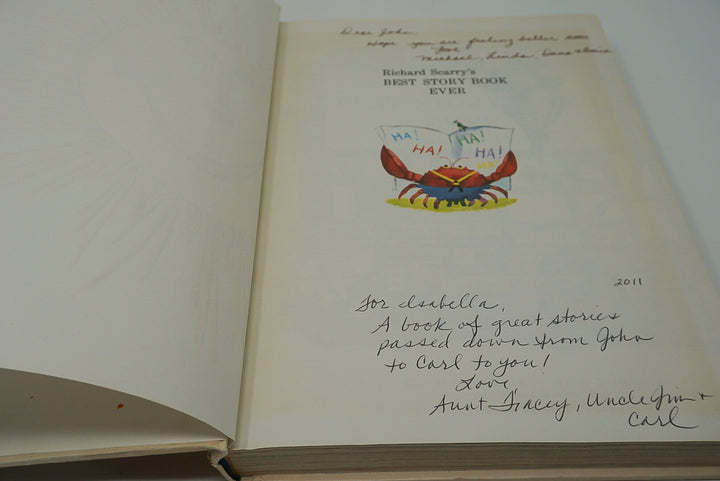 Dear John,
Hope you are feeling better soon
Love
Michael, Linda, Dana &
Richard Scarry's
BEST STORY BOOK
EVER
HA! HA!
HA! HA!
2011
For Isabella,
A book of great stories
passed down from John
to Carl to you!
Love
Aunt Tracey, Uncle Jim +
Carl